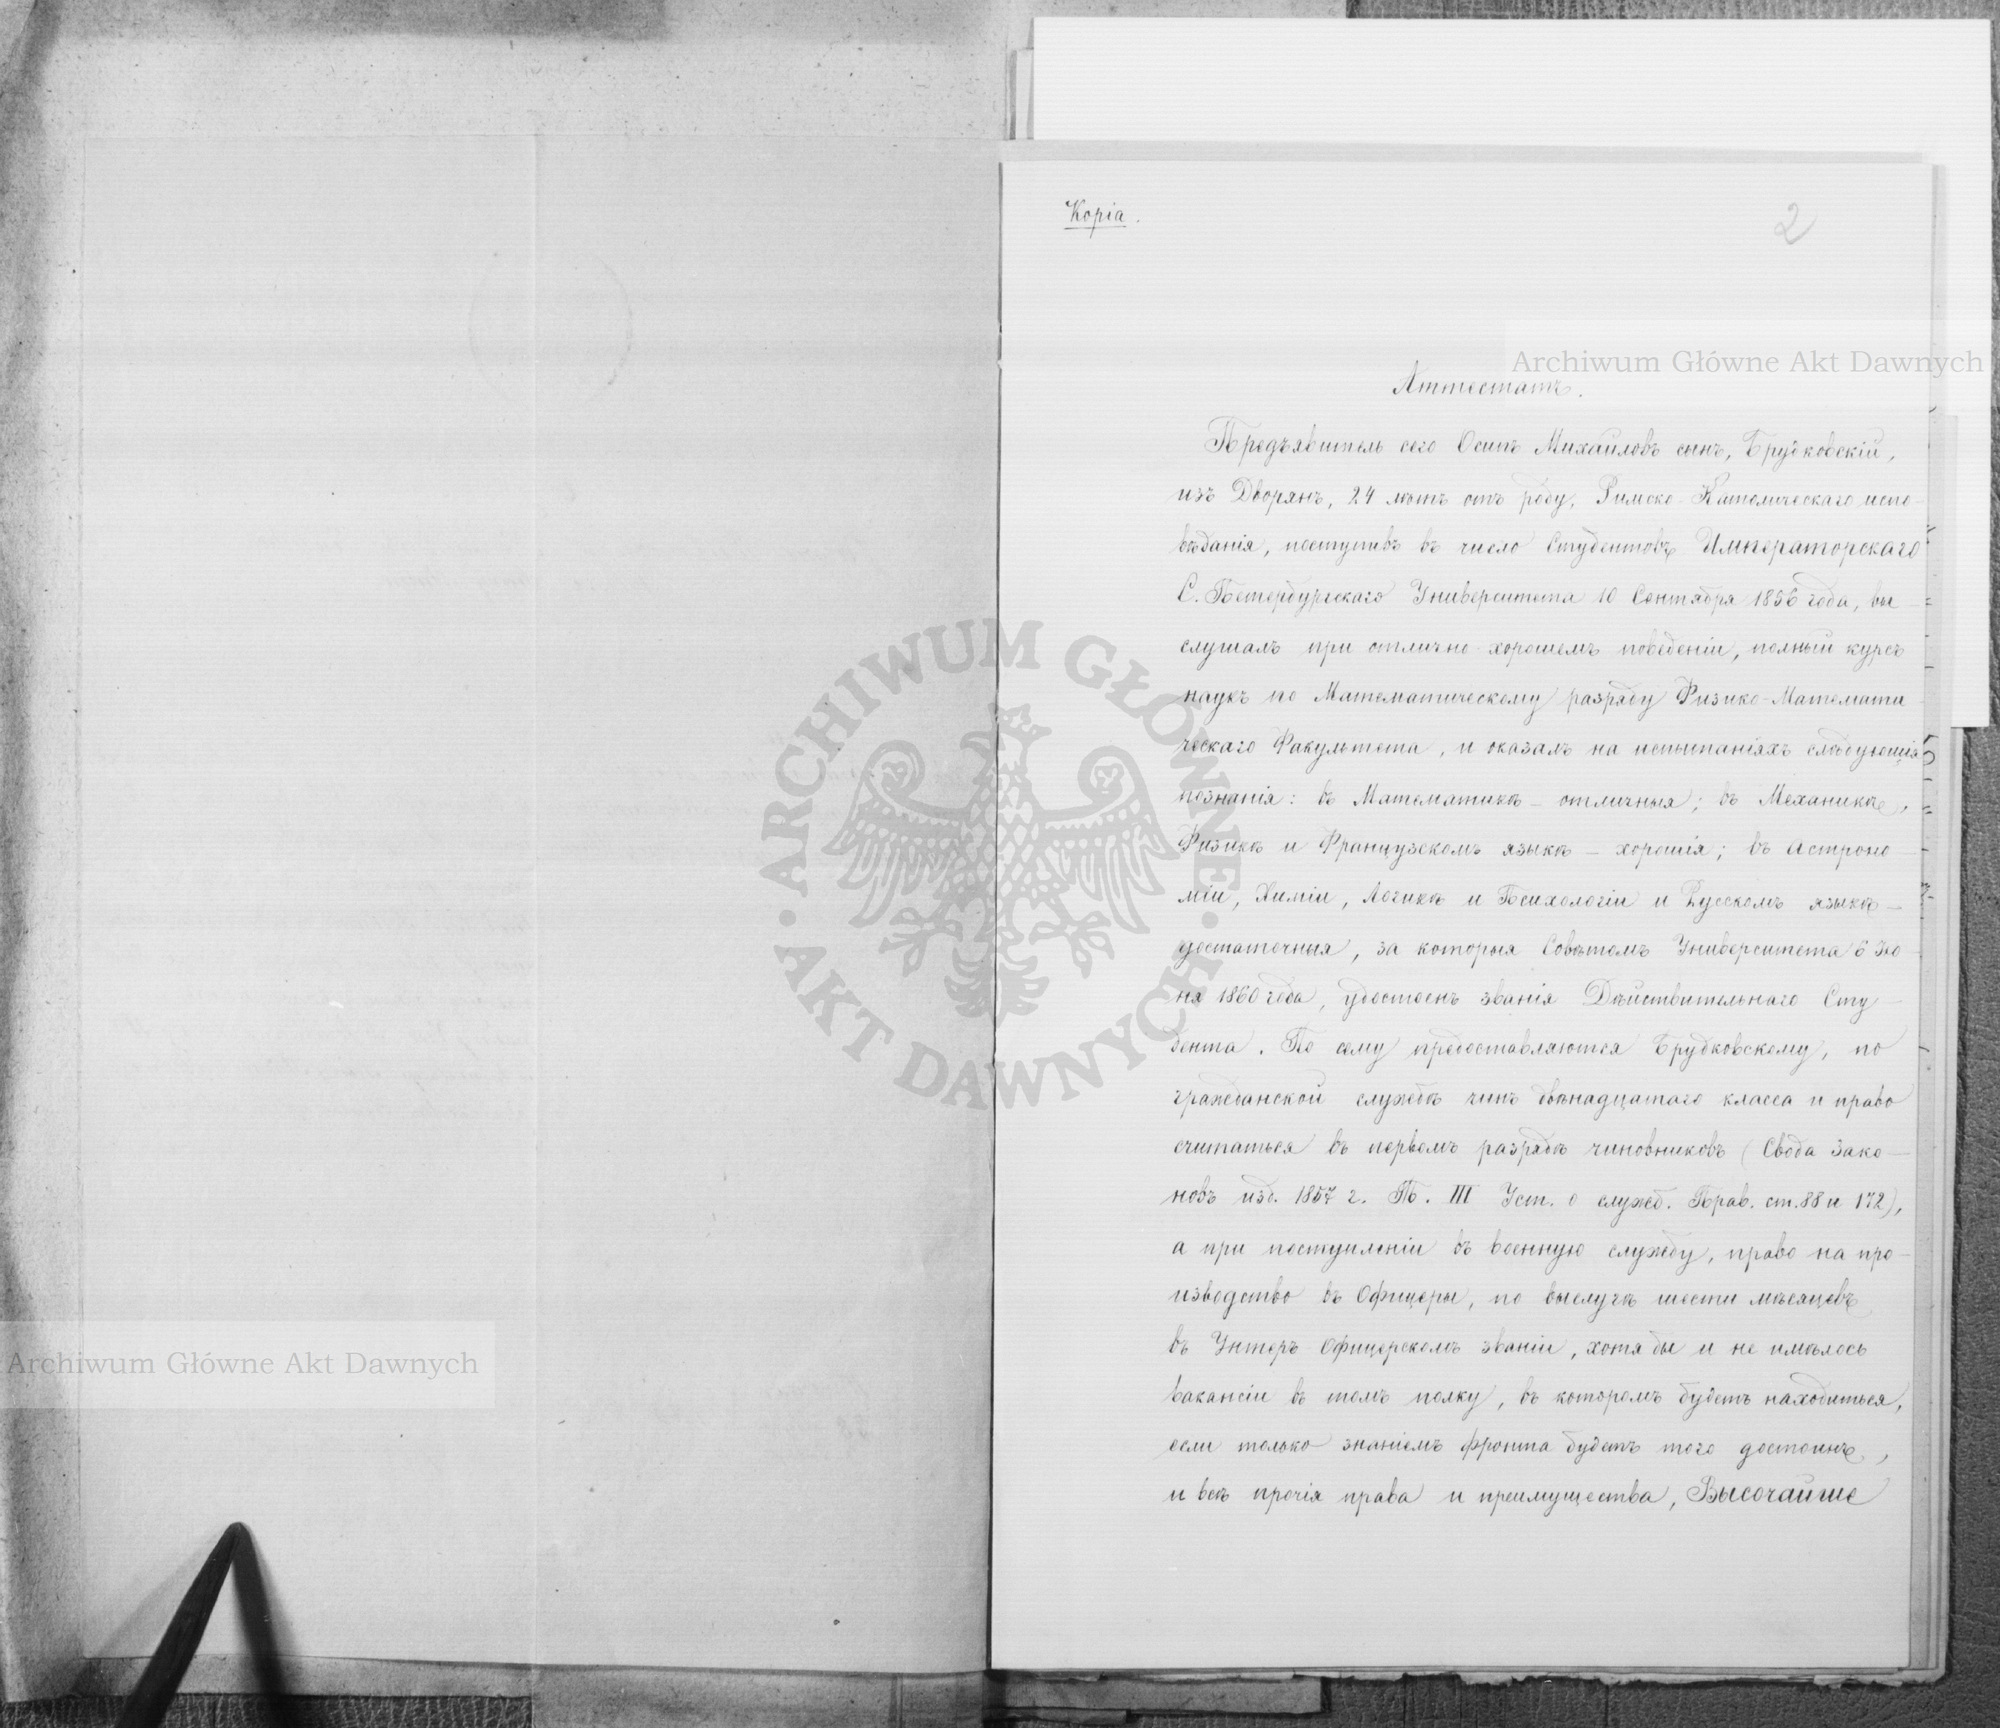 Копія.
2
Archiwum Główne Akt Dawnych
Аттестатъ.
Предъявитель сего Осипъ Михайловъ сынъ, Брудковскій,
изъ Дворянъ, 24 лѣтъ отъ роду, Римско-Католическаго испо-
вѣданія, поступивъ въ число Студентовъ Императорскаго
С. Петербургскаго Университета 10 Сентября 1856 года, вы-
слушалъ при отлично-хорошемъ поведеніи, полный курсъ
наукъ по Математическому разряду Физико-Математи-
ческаго Факультета, и оказалъ на испытаніяхъ слѣдующія
познанія: въ Математикѣ – отличныя; въ Механикѣ,
Физикѣ и Французскомъ языкѣ – хорошія; въ Астроно-
міи, Химіи, Логикѣ и Психологіи и Русскомъ языкѣ –
достаточныя, за которыя Совѣтомъ Университета 6 Iю-
ня 1860 года, удостоенъ званія Дѣйствительнаго Сту-
дента. По сему предоставляются Брудковскому, по
гражданской службѣ чинъ двѣнадцатаго класса и право
считаться въ первомъ разрядѣ чиновниковъ (Свода Зако-
новъ изд. 1857 г. Т. III Уст. о служб. Прав. ст. 88 и 172),
а при поступленіи въ военную службу, право на про-
изводство въ Офицеры, по выслугѣ шести мѣсяцевъ
въ Унтеръ-Офицерскомъ званіи, хотя бы и не имѣлось
вакансіи въ томъ полку, въ которомъ будетъ находиться,
если только знаніемъ фронта будетъ того достоинъ,
и всѣ прочія права и преимущества, Высочайше
ARCHIWUM GŁÓWNE · AKT DAWNYCH ·
Archiwum Główne Akt Dawnych